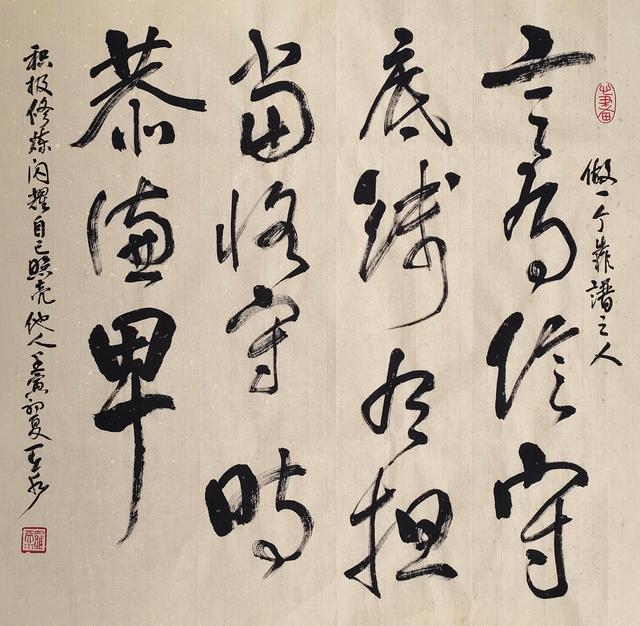 做一个靠谱之人
言为信守
底线有担
当恪守时
恭谦卑
积极修炼闪耀自己照亮他人壬寅初夏